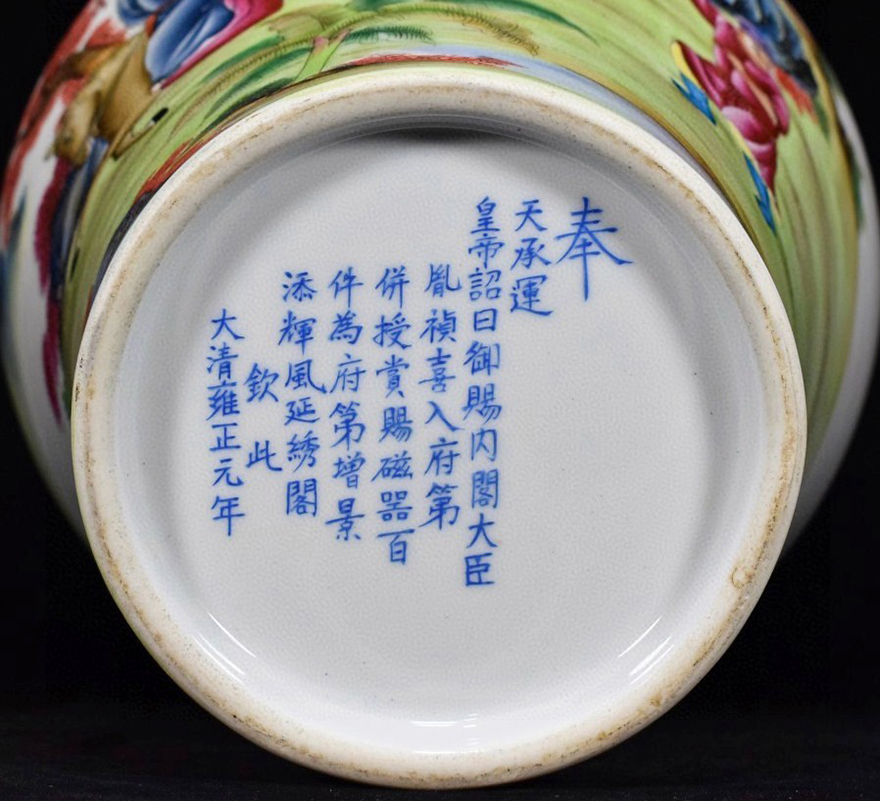 奉
天承運
皇帝詔曰御賜內閣大臣
胤禎喜入府第
併授賞賜磁器百
件為府第增景
添輝風延綉閣
欽此
大清雍正元年